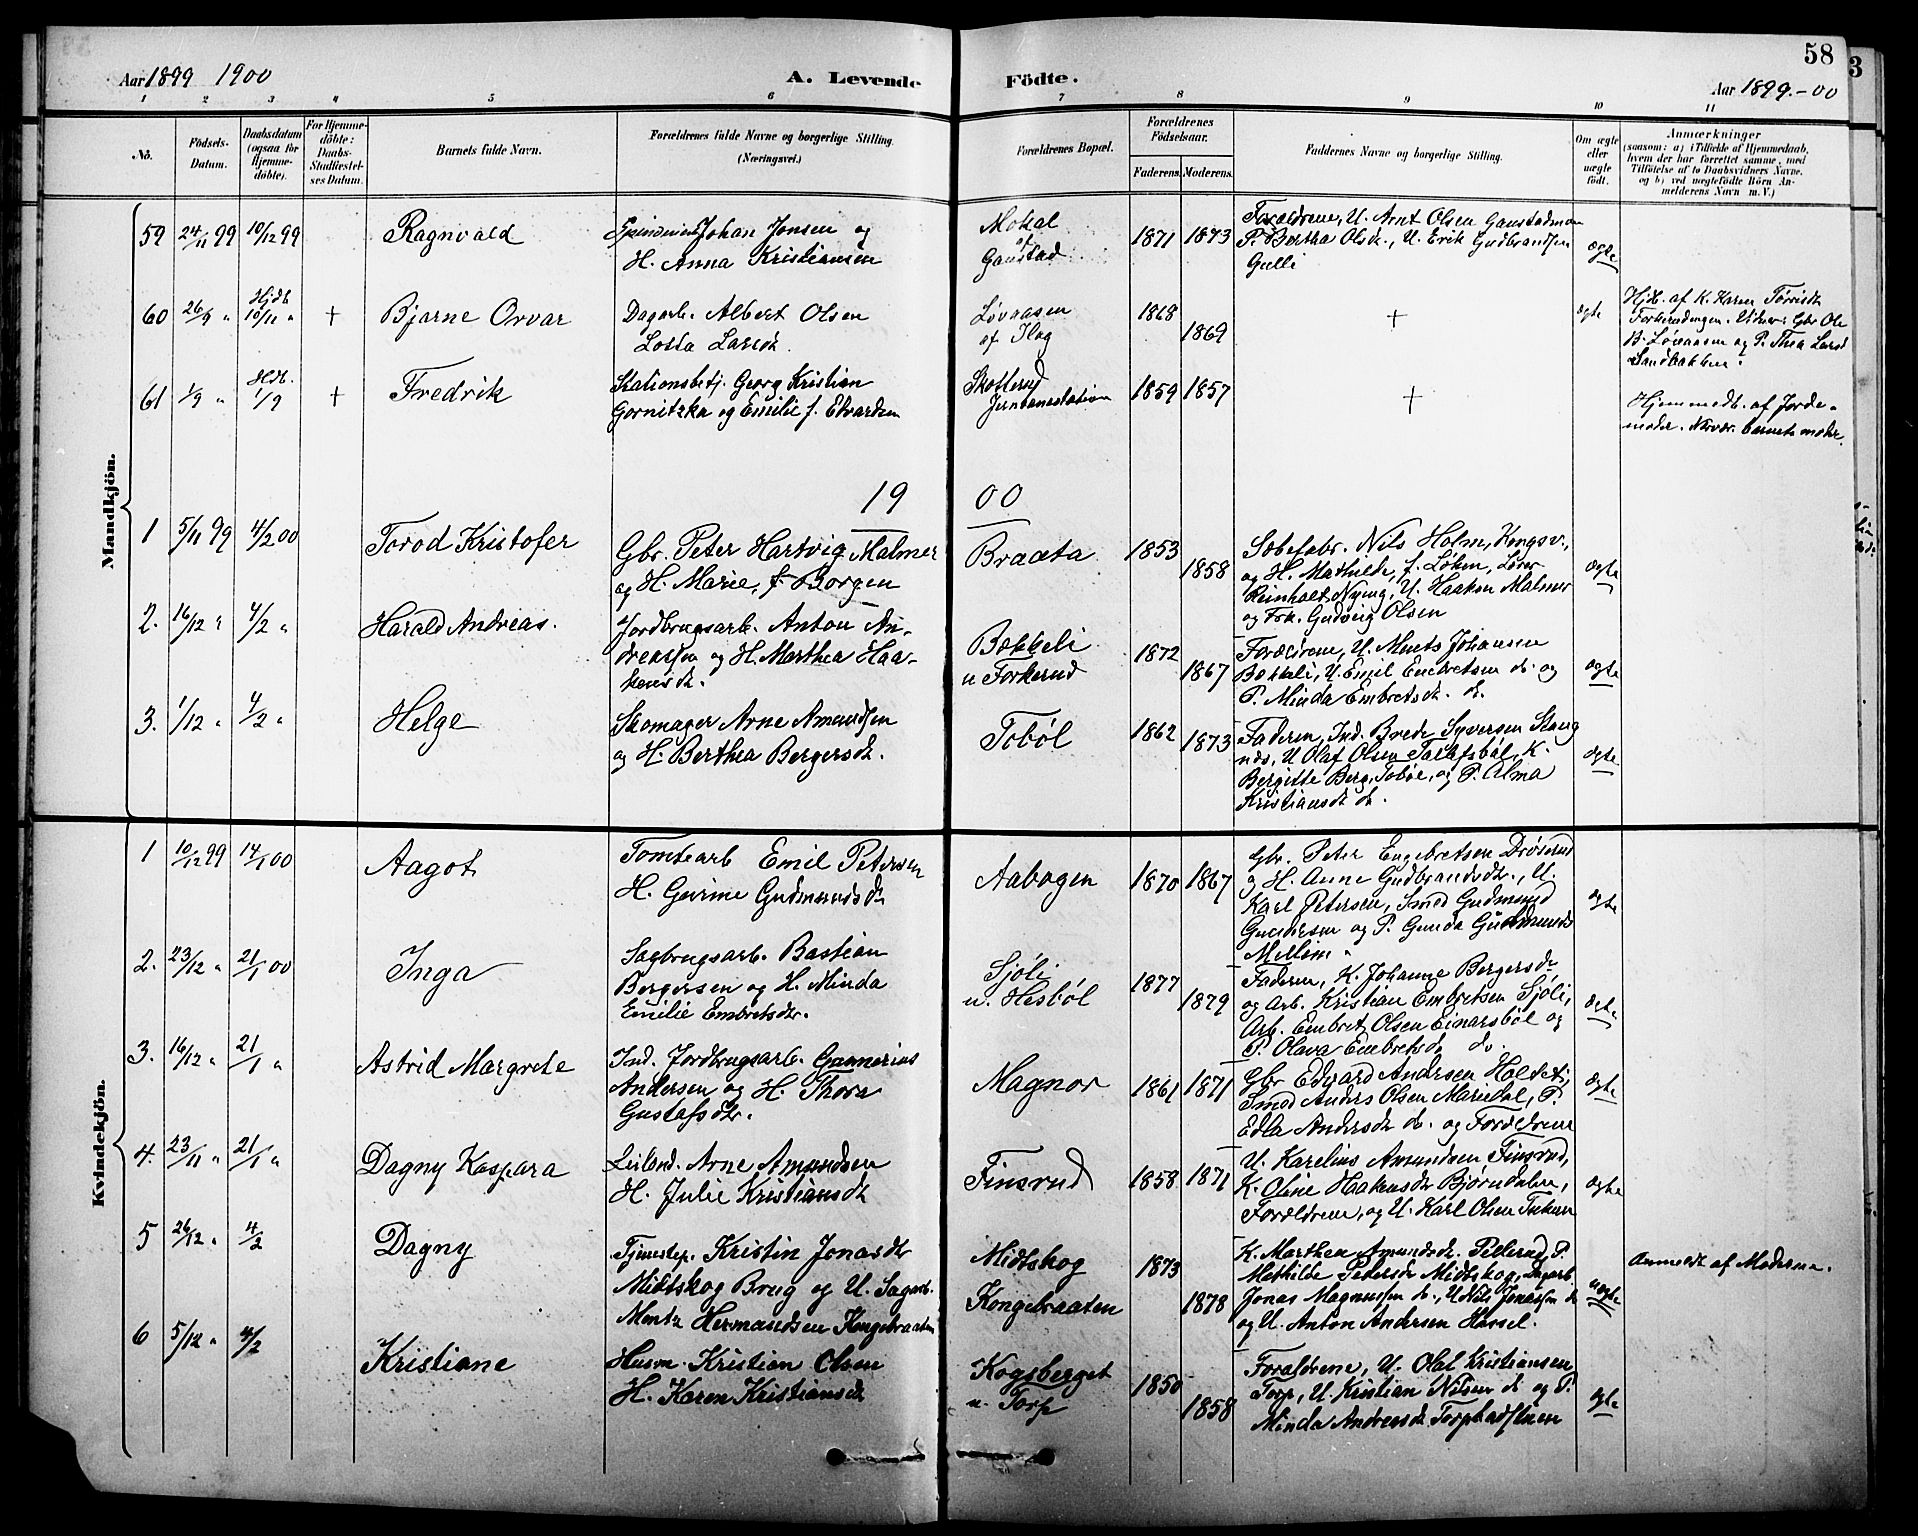 58
3
Aar 1899 1900
A. Levende Födte.
Aar 1899.-00
1 2 3 4 5 6 7 8 9 10 11
No.
Födsels-Datum.
Daabsdatum (ogsaa for Hjemme-döbte).
For Hjemme-döbte: Daabs-Stadfæstel-ses Datum.
Barnets fulde Navn.
Forældrenes fulde Navne og borgerlige Stilling. (Næringsvei.)
Forældrenes Bopæl.
Forældrenes Födselsaar.
Faderens. Moderens.
Faddernes Navne og borgerlige Stilling.
Om ægte eller uægte født.
Anmærkninger
(saasom: a) i Tilfælde af Hjemmedaab,
hvem der har forrettet samme, med
Tilföielse af to Daabsvidners Navne,
og b) ved uægtefödte Börn An-
melderens Navn m. V.)
Mandkjön.
59 24/11 99 10/12 99 Ragnvald
Johan Jonsen og
H. Anna Kristiansen
Mokal
af
Gaustad
1871 1873
Forældrene, U. Arnt Olsen Gaustadmoen
P. Bertha Olsdr., U. Erik Gudbrandsen
Gulli
ægte
60 26/9 " Hjdb. 10/11 " + Bjarne Orvar
Dagarb. Albert Olsen
Lotta Larsdr.
Løvaasen
af Ilag
1868 1869
+
ægte
Hjdb. af K. Karen Torrisdr
Forkerudengen. Vidner: Gbr Ole
B. Løvaasen og P. Thea Larsd
Sandbakken.
61 1/9 " Hdb. 1/9 + Fredrik
Stationsbetj. Georg Kristian
Gornitzka og Emilie f. Edvardsen
Skotterud
Jernbanestation
1859 1857
+
Hjemmedb. af Jorde-
moder. Nærvær. barnets moder.
1900
1 5/11 99 4/2 00 Torod Kristofer
Gbr. Peter Hartvig Malmer
og H. Marie, f. Borgen
Braata
1853 1858
Sæbefabr. Nils Holm, Kongsv.,
og H. Mathilde, f. Løken, Lærer
Reinholt Nyeng, U. Haakon Malmer
og Frk. Gudvig Olsen
ægte
2. 16/12 " 4/2 " Harald Andreas.
Jordbrugsarb. Anton An-
dreassen og H. Marthea Haa-
kensdr.
Bækkeli
u Forkerud
1872 1867
Forældrene, U. Ments Johansen
Bækkeli, U. Emil Embretsen ds. og
P. Minda Embretsdr. ds.
ægte
3. 1/12 " 4/2 " Helge
Skomager Arne Amundsen
og H. Berthea Bergersdr.
Tobøl
1862 1873
Faderen, Ind. Brede Syversen Skaug
nds, U Olaf Olsen Tallafsbøl, K.
Bergitte Berg, Tobøl, og P. Alma
Kristiansdr ds.
ægte
Kvindekjön.
1 10/12 99 14/1 00 Aagot
Tomtearb Emil Petersen
H. Gurine Gudmundsdr
Aabogen
1870 1867
Gbr. Peter Engebretsen Drøserud
og H. Anne Gudbrandsdr., U.
Karl Petersen, Smed Gudmund
Gundersen og P. Gunda Gudmunds
Mellem "
ægte
2. 23/12 " 21/1 00 Inga
Sagbrugsarb. Bastian
Bergersen og H. Minda
Emilie Embretsdr.
Sjøli
u. Hesbøl
1877 1879
Faderen, K. Johanne Bergersdr
og Arb. Kristian Embretsen Sjøli,
Arb. Embret Olsen Einarsbøl og
P. Olava Embretsdr ds.
ægte
3. 16/12 " 21/1 " Astrid Margrete
Ind. Jordbrugsarb. Gunnerius
Andersen og H. Thora
Gustafsdr.
Magnor
1861 1871
Gbr Edvard Andersen Holtet,
Smed Anders Olsen Mariedal, P.
Edla Andersdr ds. og Forældrene
ægte
4. 23/11 " 21/1 " Dagny Kaspara
Leiland. Arne Amundsen
H. Julie Kristiansdr
Finsrud
1858 1871
U. Karelius Amundsen Finsrud,
K. Oline Haakensdr Bjørndalen,
Forældrene, og U. Karl Olsen
ægte
5 26/12 " 4/2 Dagny
Tjenestep. Kristin Jonasdr
Midtskog Brug og U. Sagarb.
Mentz Hermandsen Kongebraaten
Midtskog
Kongebraaten
1873 1878
K. Marthea Amundsdr. Pellerud, P.
Mathilde Pedersdr Midtskog, Dagarb.
Jonas Magnussen ds., U Nils Jonassen ds
og U. Anton Andersen Hassel.
uægte
Anmeldt af Moderen.
6 5/12 " 4/2 Kristiane
Husm. Kristian Olsen
H. Karen Kristiansdr
Kogsberget
u. Torp
1850 1858
Forældrene, U. Olaf Kristiansen
Torp, U. Kristian Nilsen ds og P.
Minda Andreasdr
ægte